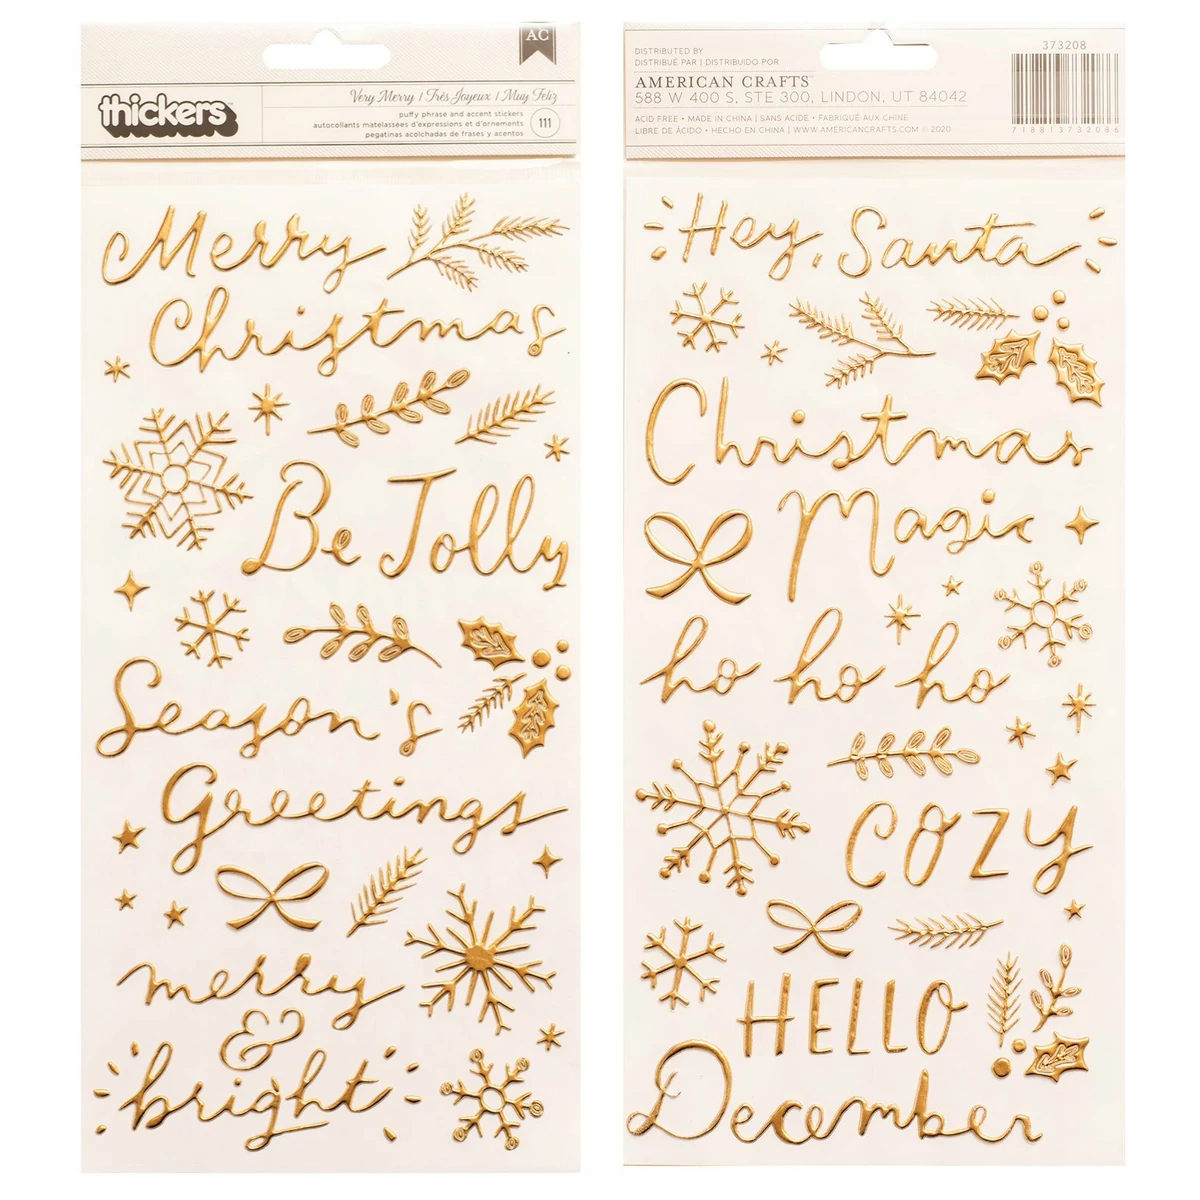 AC
thickers™
Very Merry | Très Joyeux | Muy Feliz
puffy phrase and accent stickers
autocollants matelassées d'expressions et d'ornements
pegatinas acolchadas de frases y acentos
111
Merry
Christmas
Be Jolly
Season's
Greetings
merry
&
bright
DISTRIBUTED BY
DISTRIBUÉ PAR | DISTRIBUIDO POR
AMERICAN CRAFTS™
588 W 400 S, STE 300, LINDON, UT 84042
ACID FREE • MADE IN CHINA | SANS ACIDE • FABRIQUÉ AUX CHINE
LIBRE DE ÁCIDO • HECHO EN CHINA | WWW.AMERICANCRAFTS.COM © 2020
373208
718813732086
Hey, Santa
Christmas
Magic
ho ho ho
COZY
HELLO
December